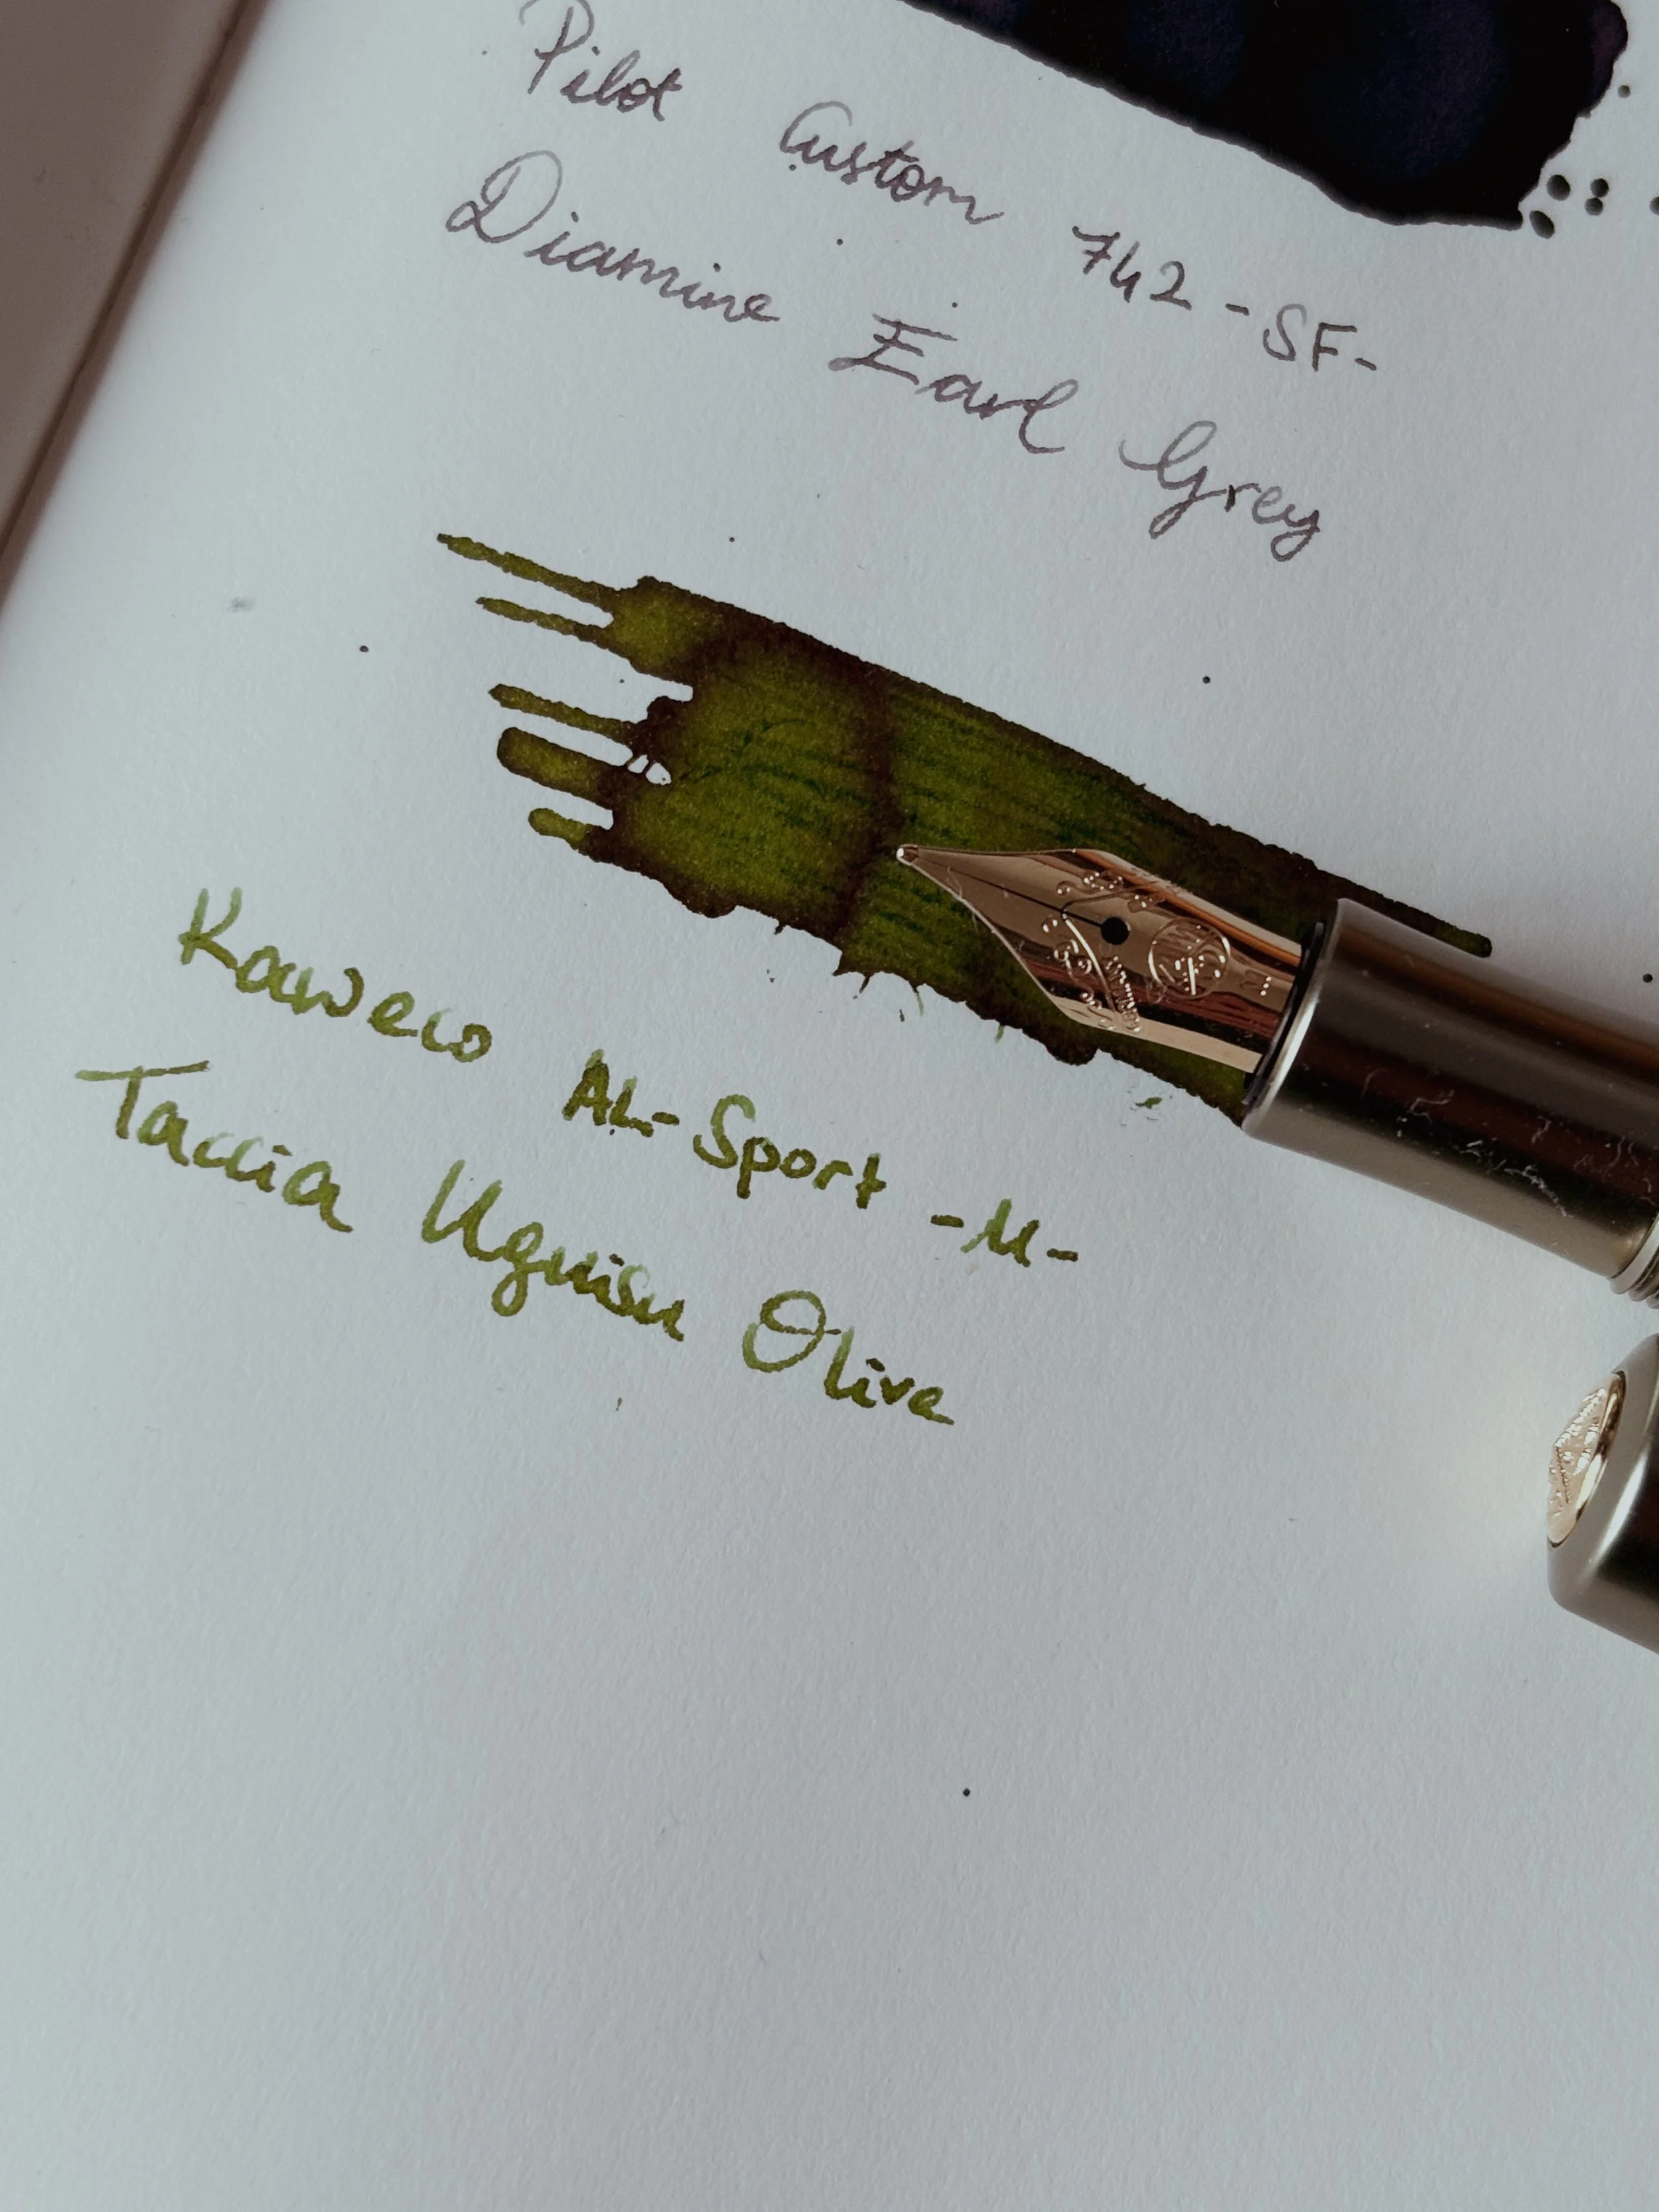 Pilot Custom 742 -SF-
Diamine Earl Grey
Kaweco AL-Sport -M-
Taccia Uguisu Olive